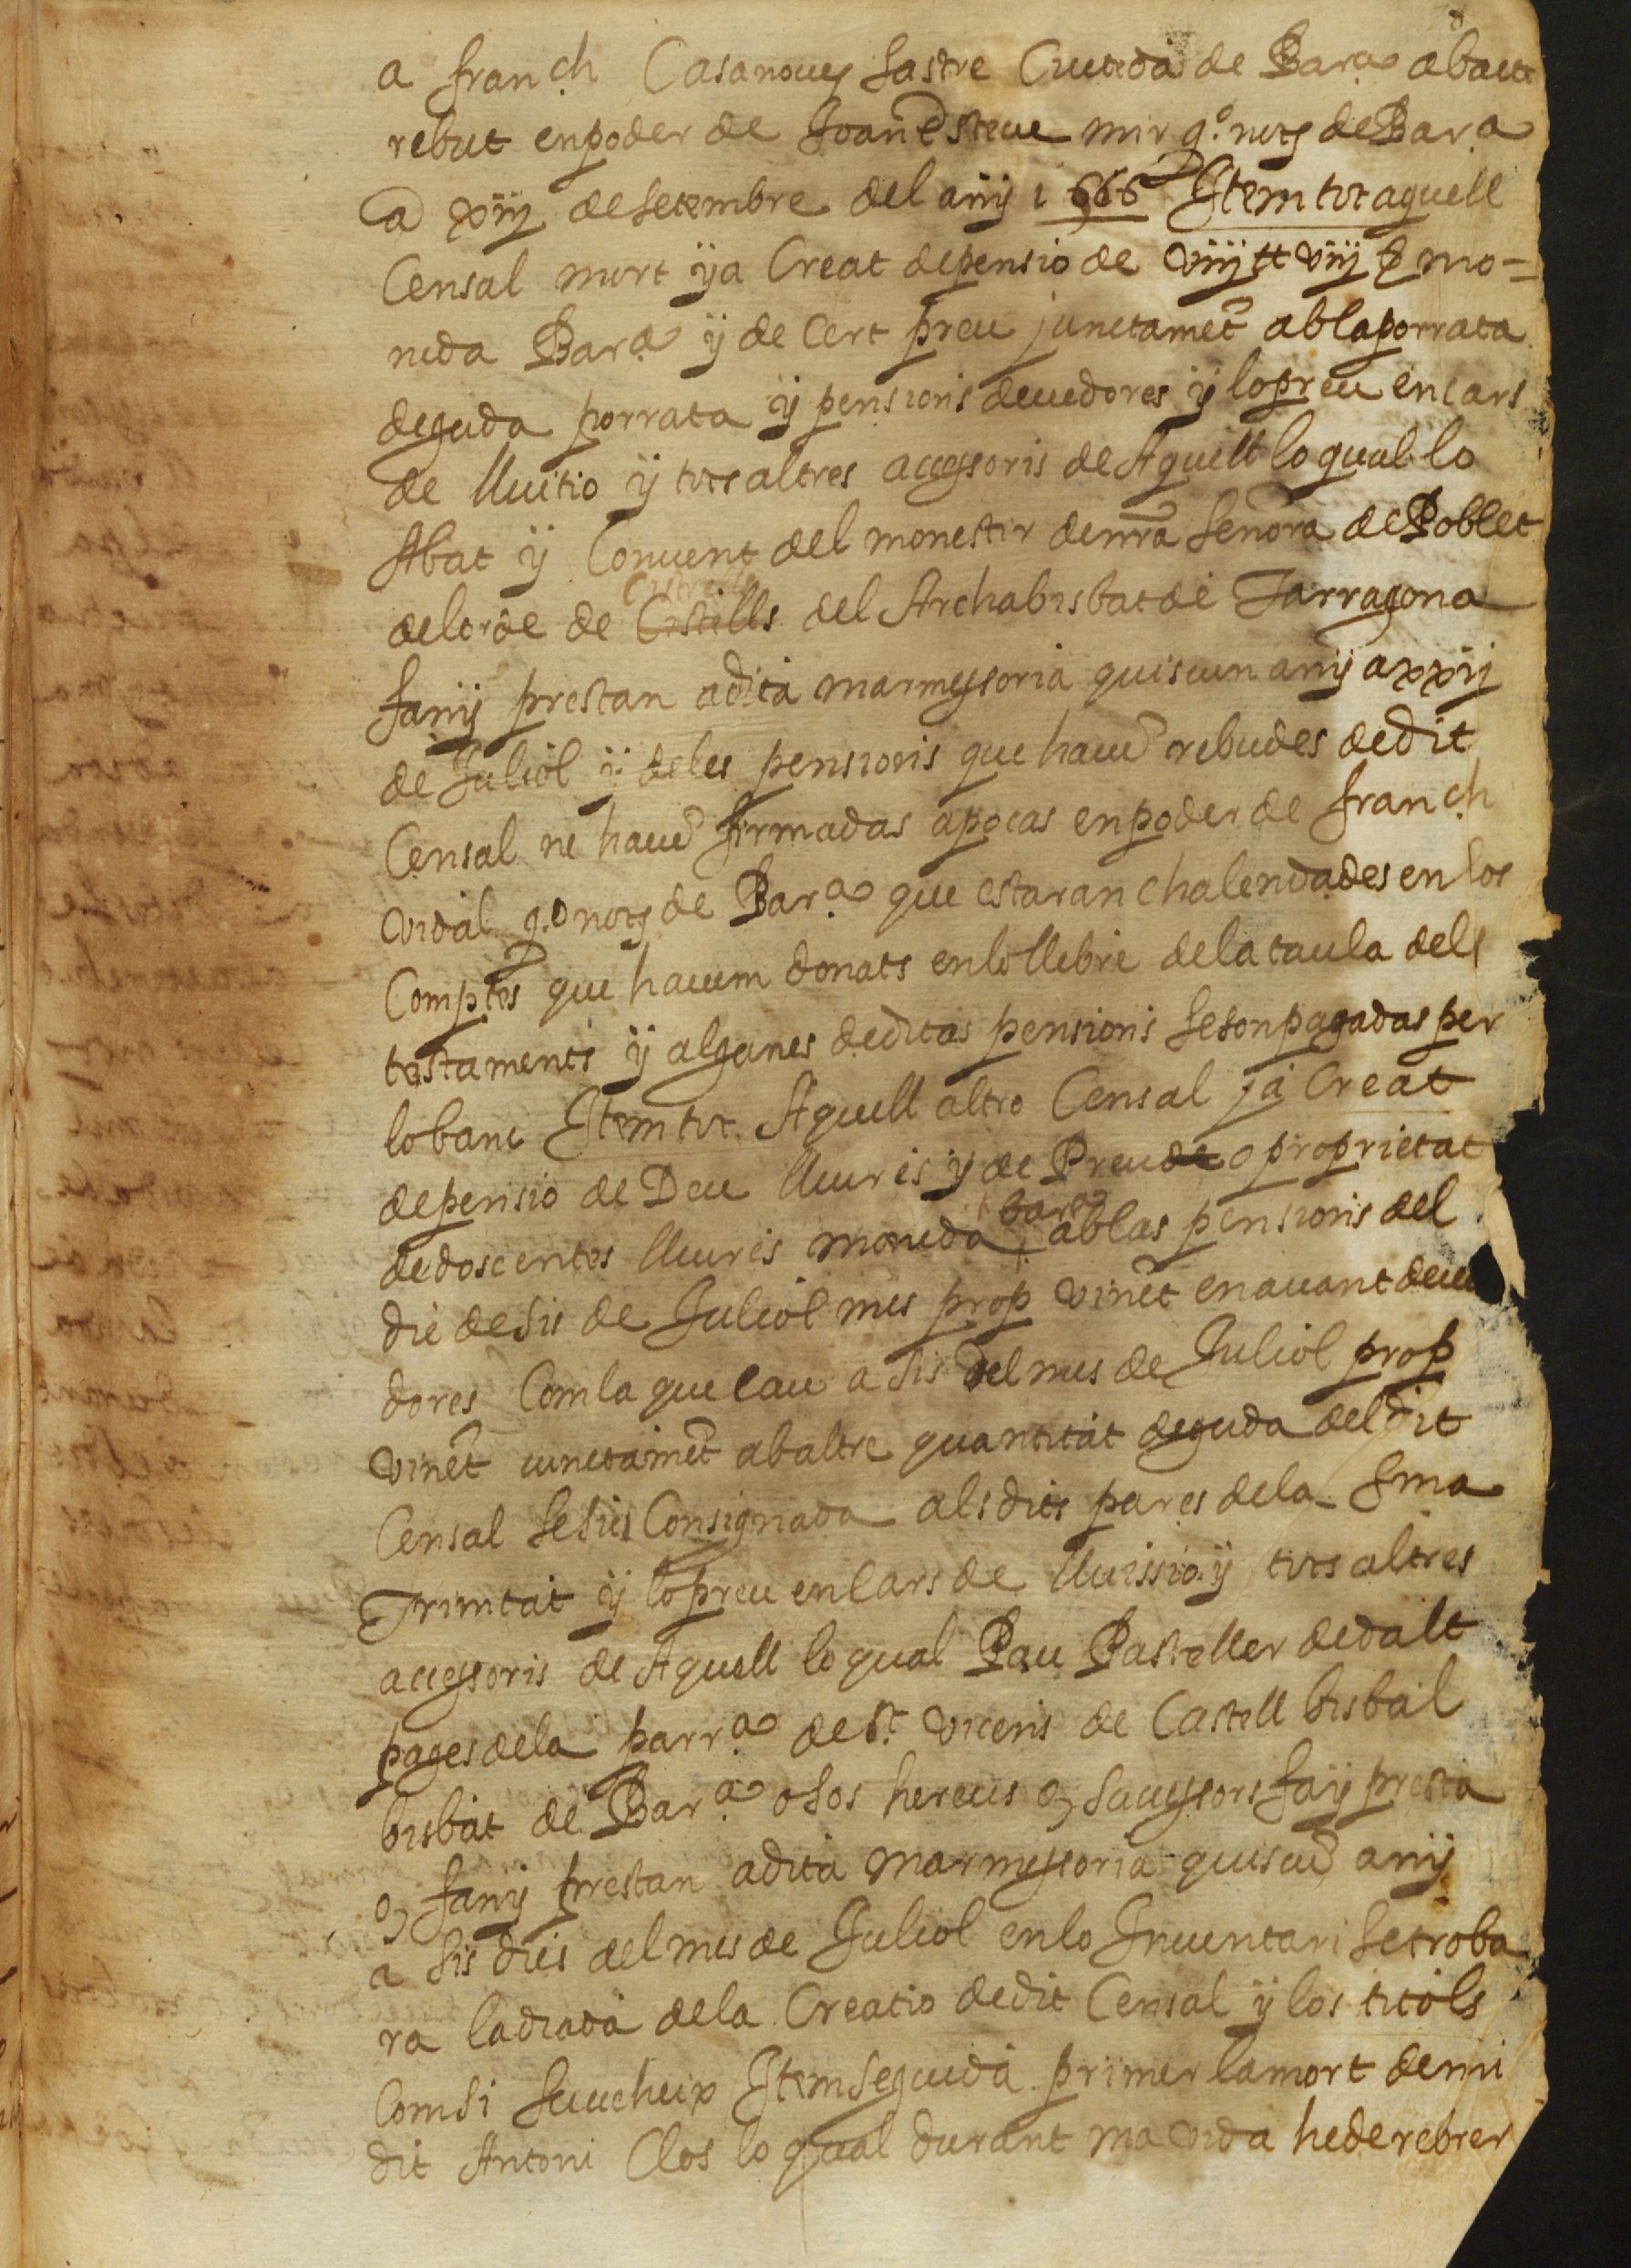 a franch Casanoues sastre Ciutedà de Bar.a ab acte
rebut en poder de Joan Esteue mir q.º nots de Bar.a
a xiij de setembre del anÿ 1666 Item tot aquell
Censal mort ÿa Creat de pensio de viij tt viij s mo-
neda Bar.a ÿ de Cert preu junctamet ab la porrata
deguda porrata ÿ pensions deuedores ÿ lo preu en cars
de lluitio ÿ tots altres accessoris de Aquell lo qual lo
Abat ÿ Conuent del monestir de nra señora de Poblet
del orde de Cistells del Archabisbat de Tarragona
fanÿ prestan a dita marmessoria quiscun anÿ a xxij
de Juliol ÿ de les pensions que haue rebudes de dit
Censal ne haue firmadas apocas en poder de franch
vidal q.º nots de Bar.a que estaran chalendades en los
Comptes que hauem donats en lo llibre de la taula dels
testaments ÿ algunes de ditas pensions se son pagadas per
lo banc Item tot Aquell altro Censal ja Creat
de pensio de Deu lliures ÿ de Preu de o proprietat
de doscentes lliures moneda bar.a ab las pensions del
die de sis de Juliol mes prop vinet en auant deue
dores Com la que cau a sis del mes de Juliol prop
vinet iunctamet ab altre quantitat deguda del dit
Censal se sies Consignada als dits pares de la Sma
Trinitat ÿ lo preu en cars de lluissio ÿ tots altres
accessoris de Aquell lo qual Pau Pasteller de dalt
pages de la parr.a de St. vicens de Castell bisbal
bisbat de Bar.a o sos hereus o, successors faÿ presta
o, fanÿ prestan a dita marmessoria quiscu anÿ
a sis dies del mes de Juliol en lo Inuentari se troba
ra la diada de la Creatio de dit Censal ÿ los titols
Com si succheix Item seguida primer la mort de mi
dit Antoni Clos lo qual durant ma vida he de rebrer